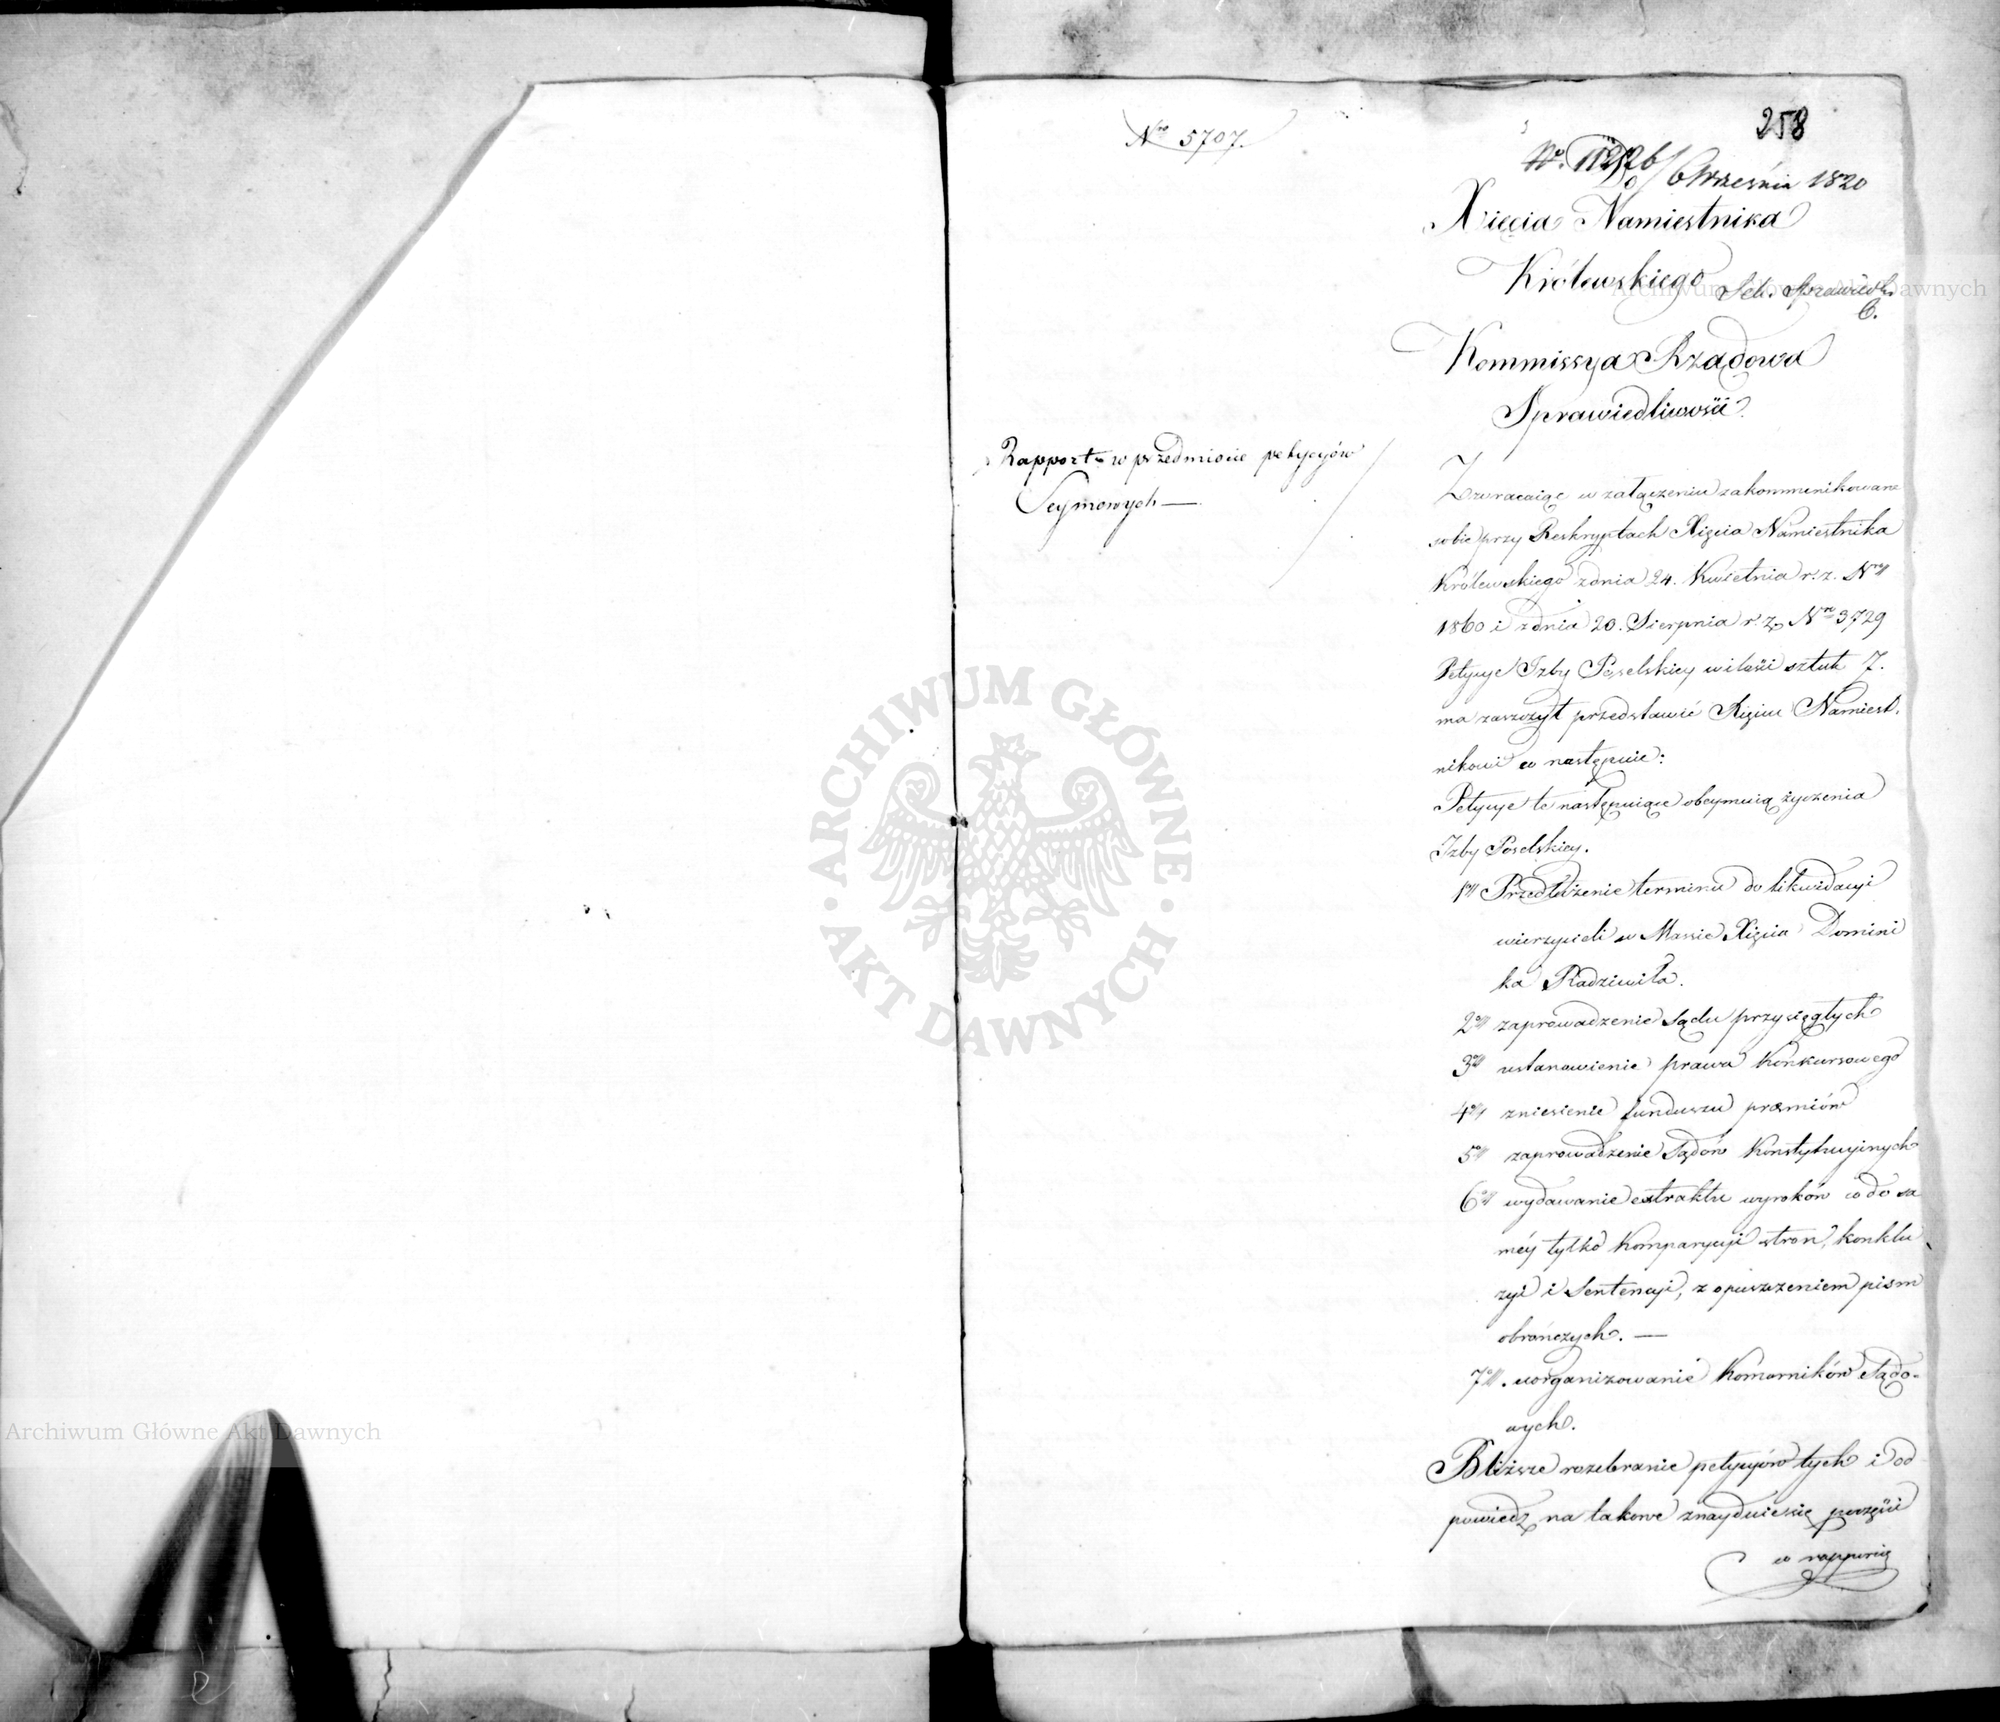 258
Nro 5707.
6 Września 1820
Do
Xięcia Namiestnika
Królewskiego
Kommissya Rządowa
Sprawiedliwości.
Rapport w przedmiocie petycyów
Seymowych —
Zwracaiąc w załączeniu zakommunikowane
sobie przy Reskryptach Xięcia Namiestnika
Królewskiego z dnia 24. Kwietnia r. z. Nry
1860 i z dnia 20. Sierpnia r. z. Nro 3729
Petycye Izby Poselskiey w ilości sztuk 7.
ma zaszczyt przedstawić Xięciu Namiest.
nikowi co następuie:
Petycye te następuiące obeymuią życzenia
Izby Poselskiey.
1o Przedłużenie terminu do likwidacyi
wierzycieli w Massie Xięcia Domini
ka Radziwiła.
2o zaprowadzenie sądu przysięgłych
3o ustanowienie prawa Konkursowego
4o zniesienie funduszu praemiów
5o zaprowadzenie Sądów Konstytucyinych
6o wydawanie extraktu wyroków co do sa
méy tylko Komparycyi stron, konklu
zyi i Sentencyi, z opuszczeniem pism
obrończych. —
7o uorganizowanie Komorników Sądo-
wych.
Bliższe rozebranie petycyów tych i od
powiedź na takowe znayduie się poczęści
w rapporcie
ARCHIWUM GŁÓWNE · AKT DAWNYCH ·
Archiwum Główne Akt Dawnych
Archiwum Główne Akt Dawnych